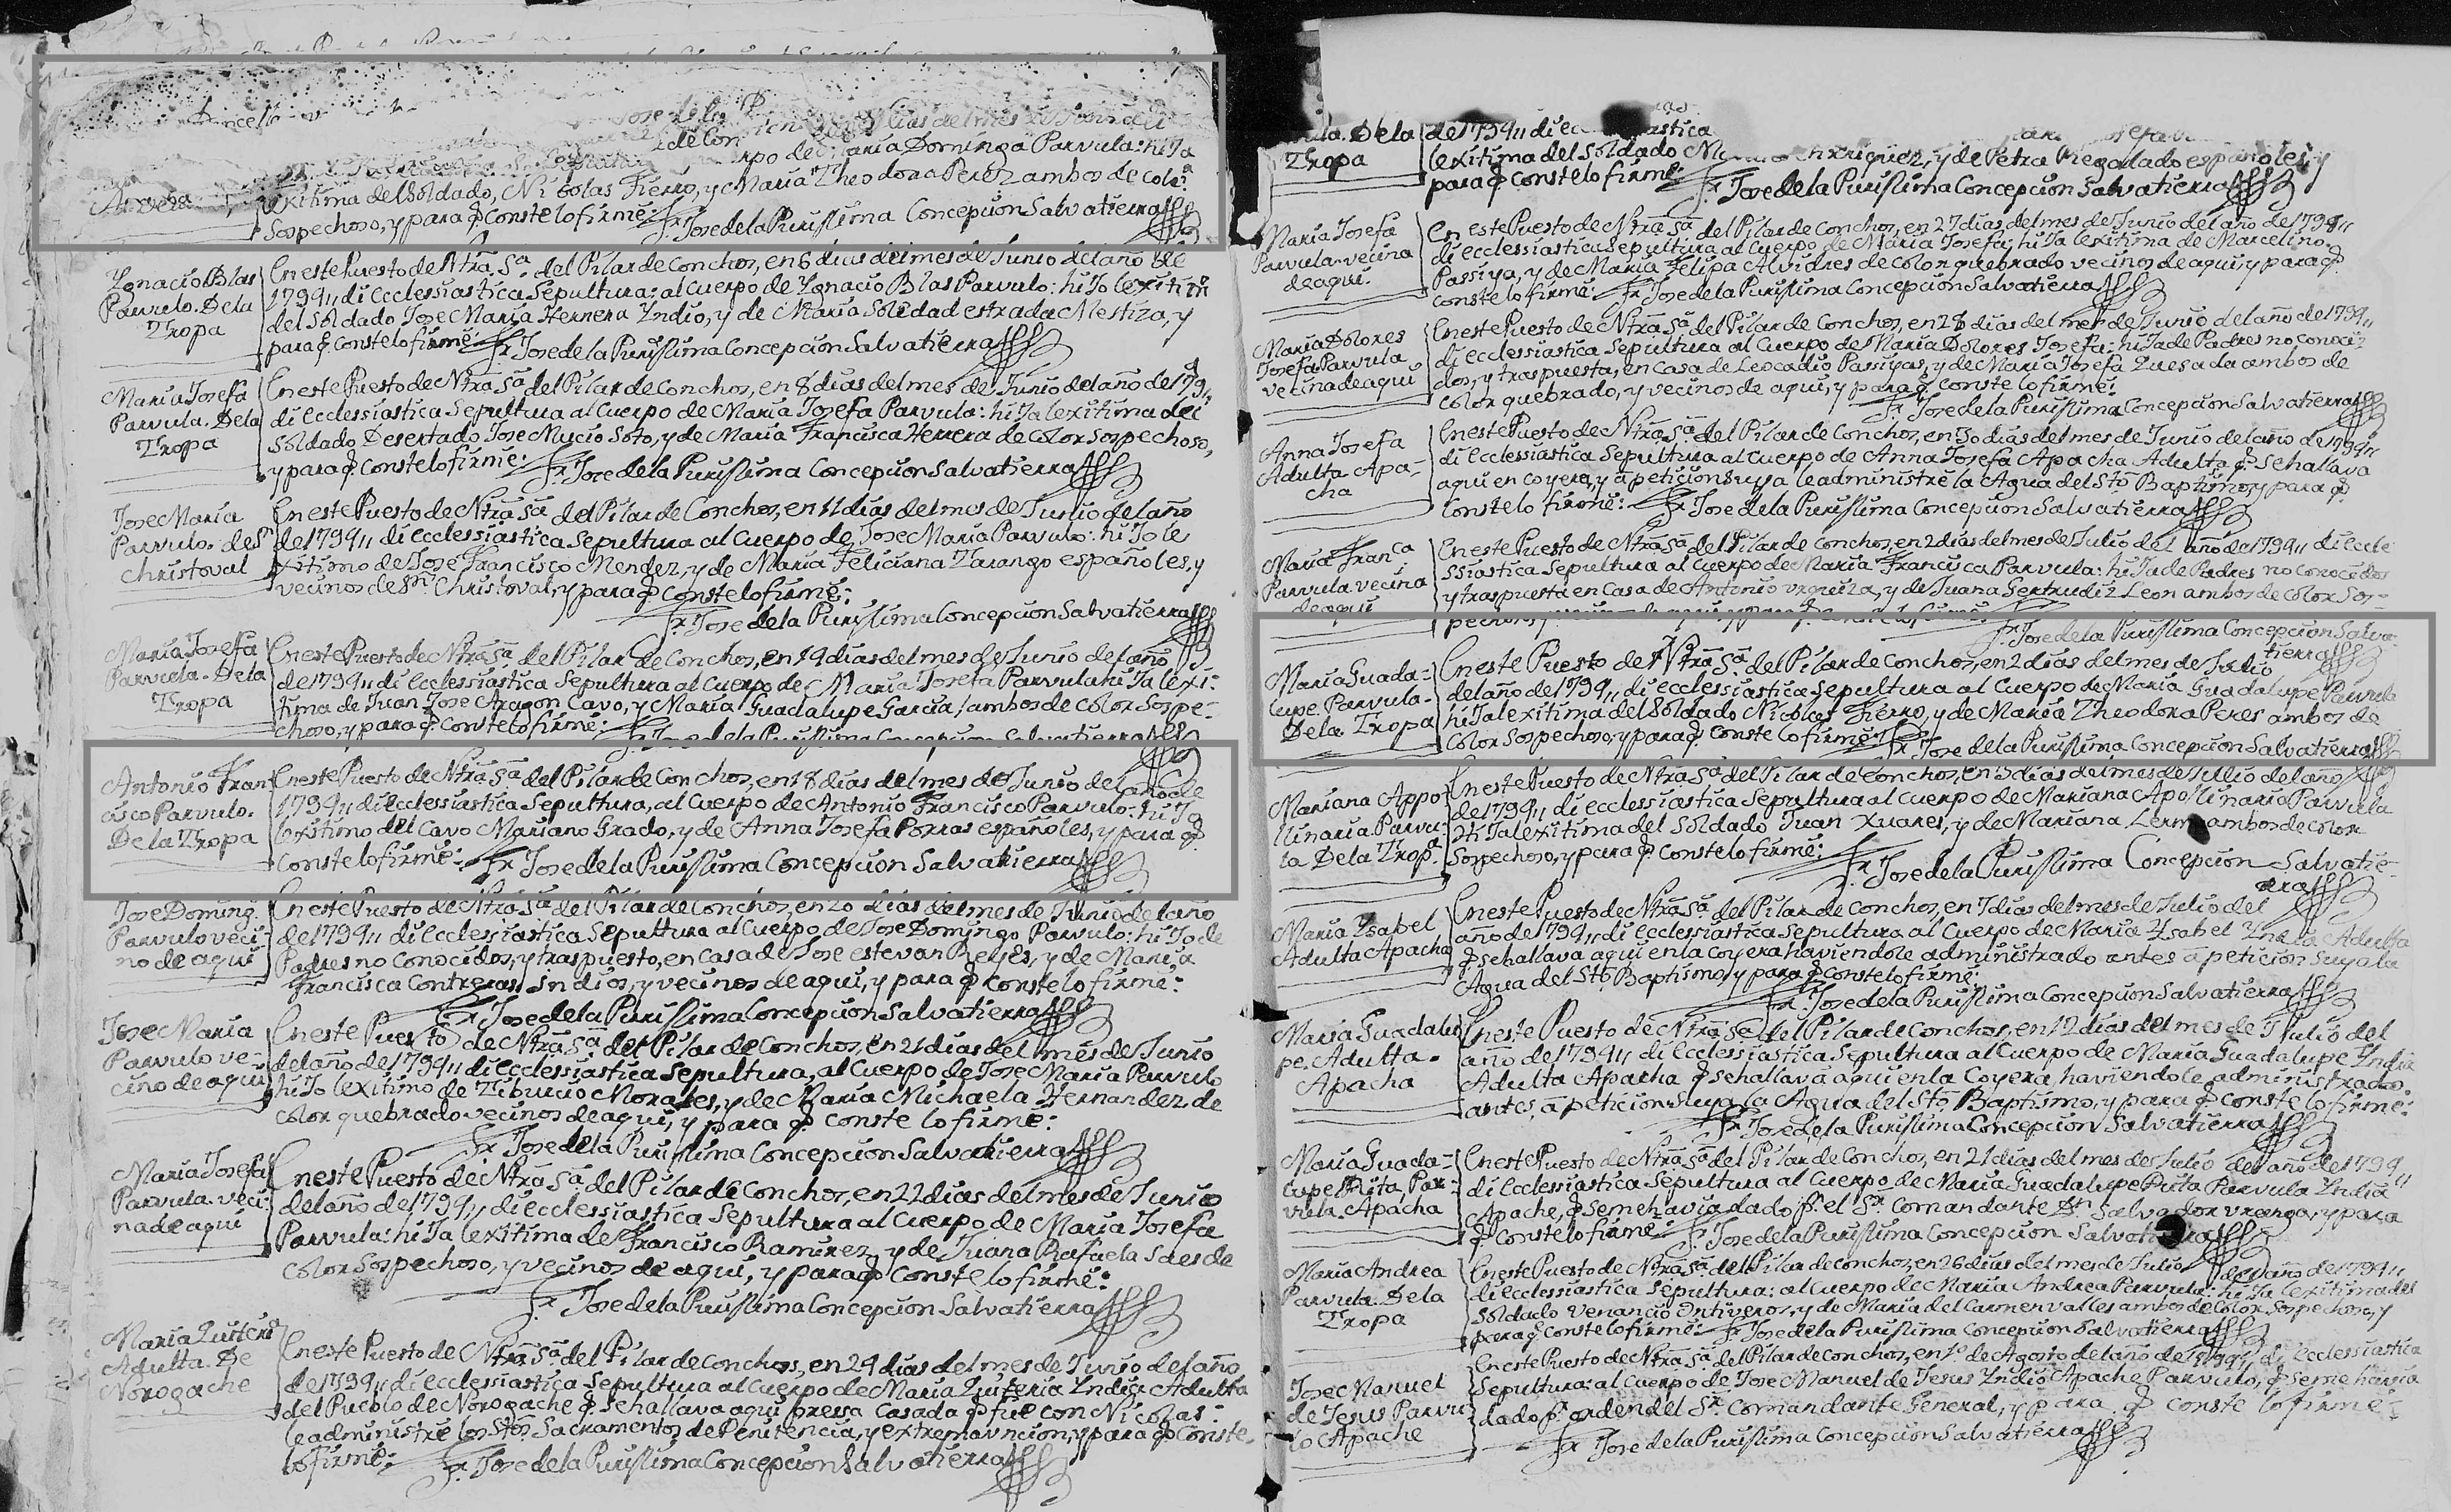 Jose de la P
dias del mes de Junio del
de Con
cuerpo de Maria Dominga Parvula: hiJa
lexitima del Soldado, Nicolas Fierro, y Maria Theodora Perez ambos de color
Sospechoso, y para q constelo firmé: Fr. Jose de la Purissima Concepcion Salvatierra
Ygnacio Blas
Parvulo. Dela
Tropa
En este Puesto de Ntra Sa del Pilar de Conchos, en 6 dias del mes de Junio del año de
1794,, di Ecclesiastica Sepultura: al Cuerpo de Ygnacio Blas Parvulo: hiJo lexitimo
del Soldado Jose Maria Herrera Yndio, y de Maria Soledad estrada Mestiza, y
para q constelo firmé: Fr. Jose de la Purissima Concepcion Salvatierra
Maria Josefa
Parvula. Dela
Tropa
En este Puesto de Ntra Sa del Pilar de Conchos, en 8 dias del mes de Junio del año de 1794,,
di Ecclessiastica Sepultura al Cuerpo de Maria Josefa Parvula: hiJa lexitima del
Soldado Desertado Jose Mucio Soto, y de Maria Francisca Herrera de color Sospechoso,
y para q constelo firmé: Fr. Jose de la Purissima Concepcion Salvatierra
Jose Maria
Parvulo. de Sn
Christoval
En este Puesto de Ntra Sa del Pilar de Conchos, en 11 dias del mes de Junio del año
de 1794,, di ecclessiastica Sepultura al Cuerpo de Jose Maria Parvulo: hiJo le
xitimo de Jose Francisco Mendez, y de Maria Feliciana Tarango españoles, y
vecinos de Sn Christoval, y para q constelo firmé:
Fr. Jose de la Purissima Concepcion Salvatierra
Maria Josefa
Parvula. Dela
Tropa
En este Puesto de Ntra Sa del Pilar de Conchos, en 14 dias del mes de Junio del año
de 1794,, di Ecclesiastica Sepultura al Cuerpo de Maria Josefa Parvula hiJa lexi-
tima de Juan Jose Aragon Cavo, y Maria Guadalupe Garcia, ambos de color Sospe-
choso, y para q constelo firmé: Fr. Jose de la Purissima Concepcion Salvatierra
Antonio Fran
cisco Parvulo.
De la Tropa
En este Puesto de Ntra Sa del Pilar de Conchos, en 18 dias del mes de Junio del año de
1794,, di Ecclesiastica Sepultura, al Cuerpo de Antonio Francisco Parvulo: hiJo
lexitimo del Cavo Mariano Grado, y de Anna Josefa Porras españoles, y para q
constelo firmé: Fr. Jose de la Purissima Concepcion Salvatierra
Jose Doming.
Parvulo veci-
no de aqui
En este Puesto de Ntra Sa del Pilar de Conchos, en 20 dias del mes de Junio del año
de 1794,, di Ecclesiastica Sepultura al Cuerpo de Jose Domingo Parvulo: hiJo de
Padres no conocidos, y traspuesto, en casa de Jose estevan Reyes, y de Maria
Francisca Contreras Indios, y vecinos de aqui, y para q constelo firmé:
Fr. Jose de la Purissima Concepcion Salvatierra
Jose Maria
Parvulo ve-
cino de aqui
En este Puesto de Ntra Sa del Pilar de Conchos, en 21 dias del mes de Junio
del año de 1794,, di Ecclessiastica Sepultura, al Cuerpo de Jose Maria Parvulo
hiJo lexitimo de Tiburcio Morales, y de Maria Michaela Hernandez de
color quebrado vecinos de aqui, y para q conste lo firmé:
Fr. Jose de la Purissima Concepcion Salvatierra
Maria Josefa
Parvula. veci-
na de aqui
En este Puesto de Ntra Sa del Pilar de Conchos, en 22 dias del mes de Junio
del año de 1794,, di ecclessiastica Sepultura al Cuerpo de Maria Josefa
Parvula: hiJa lexitima de Francisco Ramirez, y de Juana Rafaela Saes de
color Sospechoso, y vecinos de aqui, y para q conste lo firmé:
Fr. Jose de la Purissima Concepcion Salvatierra
Maria Quiteria
Adulta. De
Norogache
En este Puesto de Ntra Sa del Pilar de Conchos, en 24 dias del mes de Junio del año
de 1794,, di ecclessiastica Sepultura al Cuerpo de Maria Quiteria Yndia Adulta
del Pueblo de Norogache q Sehallava aqui pressa Casada q fue con Nicolas:
le administré los Stos Sacramentos de Penitencia, y extremauncion, y para q conste
lo firmé: Fr. Jose de la Purissima Concepcion Salvatierra
Dela
Tropa
de 1794,, di
lexitima del Soldado Enriquez, y de Petra Regalado españoles, y
para q constelo firmé: Fr. Jose de la Purissima Concepcion Salvatierra
Maria Josefa
Parvula vecina
de aqui.
En este Puesto de Ntra Sa del Pilar de Conchos, en 27 dias del mes de Junio del año de 1794,,
di ecclessiastica Sepultura al Cuerpo de Maria Josefa: hiJa lexitima de Marcelino
Passiya, y de Maria Felipa Alvidres de color quebrado vecinos de aqui y para q
constelo firmé: Fr. Jose de la Purissima Concepcion Salvatierra
Maria Dolores
Josefa Parvula
vecina de aqui
En este Puesto de Ntra Sa del Pilar de Conchos, en 28 dias del mes de Junio del año de 1794,,
di ecclessiastica Sepultura al Cuerpo de Maria Dolores Josefa: hiJa de Padres no conoci-
dos, y traspuesta, en casa de Leocadio Passiyas, y de Maria Josefa Quesada ambos de
color quebrado, y vecinos de aqui, y para q constelo firmé:
Fr. Jose de la Purissima Concepcion Salvatierra
Anna Josefa
Adulta Apa-
cha
En este Puesto de Ntra Sa del Pilar de Conchos, en 30 dias del mes de Junio del año de 1794,,
di Ecclesiastica Sepultura al Cuerpo de Anna Josefa Apacha Adulta q Sehallava
aqui en coyera, y a peticion Suya le administré la Agua del Sto Baptismo, y para q
constelo firmé: Fr. Jose de la Purissima Concepcion Salvatierra
Maria Franca
Parvula vecina
de aqui
En este Puesto de Ntra Sa del Pilar de Conchos, en 2 dias del mes de Julio del año de 1794,, di Eccle
ssiastica Sepultura al Cuerpo de Maria Francisca Parvula: hiJa de Padres no conocidos
y traspuesta en casa de Antonio Urquiza, y de Juana Gertrudiz Leon ambos de color Sos-
pechoso, y vecinos de aqui, y para q constelo firmé:
Fr. Jose de la Purissima Concepcion Salva-
tierra
Maria Guada-
lupe Parvula-
Dela Tropa
En este Puesto de Ntra Sa del Pilar de Conchos, en 2 dias del mes de Julio
del año de 1794,, di ecclessiastica Sepultura al Cuerpo de Maria Guadalupe Parvula
hiJa lexitima del Soldado Nicolas Fierro, y de Maria Theodora Peres ambos de
color Sospechoso, y para q constelo firmé: Fr. Jose de la Purissima Concepcion Salvatierra
Mariana Appo-
llinaria Parvu-
la Dela Tropa
En este Puesto de Ntra Sa del Pilar de Conchos, en 5 dias del mes de Julio del año
de 1794,, di ecclessiastica Sepultura al Cuerpo de Mariana Apollinaria Parvula
HiJa lexitima del Soldado Juan Xuares, y de Mariana Lerma ambos de color
Sospechoso, y para q constelo firmé:
Fr. Jose de la Purissima Concepcion Salvatie-
rra
Maria Ysabel
Adulta Apacha
En este Puesto de Ntra Sa del Pilar de Conchos, en 7 dias del mes de Julio del
año de 1794,, di ecclessiastica Sepultura al Cuerpo de Maria Ysabel Yndia Adulta
q sehallava aqui en la coyera haviendole administrado antes a peticion Suya la
Agua del Sto Baptismo, y para q constelo firmé:
Fr. Jose de la Purissima Concepcion Salvatierra
Maria Guadalu
pe. Adulta.
Apacha
En este Puesto de Ntra Sa del Pilar de Conchos, en 12 dias del mes de Julio del
año de 1794,, di Ecclesiastica Sepultura al Cuerpo de Maria Guadalupe Yndia
Adulta Apacha q sehallava aqui en la Coyera, haviendole administrado
antes, a peticion Suya la Agua del Sto Baptismo, y para q conste lo firmé:
Fr. Jose de la Purissima Concepcion Salvatierra
Maria Guada-
lupe Rita Par-
vula. Apacha
En este Puesto de Ntra Sa del Pilar de Conchos, en 21 dias del mes de Julio del año de 1794,,
di Ecclesiastica Sepultura al Cuerpo de Maria Guadalupe Rita Parvula Yndia
Apache, q se me havia dado pr el Sr Comandante Dn Salvador Uranga, y para
q constelo firmé: Fr. Jose de la Purissima Concepcion Salvatierra
Maria Andrea
Parvula. Dela
Tropa
En este Puesto de Ntra Sa del Pilar de Conchos, en 26 dias del mes de Julio del año de 1794,,
di ecclesiastica Sepultura: al Cuerpo de Maria Andrea Parvula: hiJa lexitima del
Soldado Venancio Ontiveros, y de Maria del Carmen Valles ambos de color Sospechoso, y
para q constelo firmé: Fr. Jose de la Purissima Concepcion Salvatierra
Jose Manuel
de Jesus Parvu
lo Apache
En este Puesto de Ntra Sa del Pilar de Conchos, en 1o de Agosto del año de 1794,, di Ecclessiastica
Sepultura: al Cuerpo de Jose Manuel de Jesus Yndio Apache Parvulo, q se me havia
dado pr orden del Sr Comandante General, y para q conste lo firmé:
Fr. Jose de la Purissima Concepcion Salvatierra